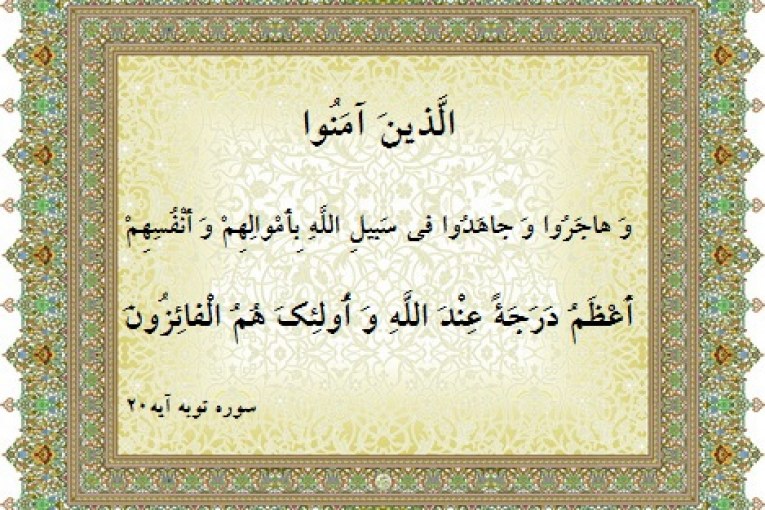 الَّذينَ آمَنُوا
وَ هاجَرُوا وَ جاهَدُوا فى سَبيلِ اللَّهِ بِأَمْوالِهِمْ وَ أَنْفُسِهِمْ
أَعْظَمُ دَرَجَةً عِنْدَ اللَّهِ وَ أُولئِکَ هُمُ الْفائِزُونَ
سوره توبه آیه۲۰